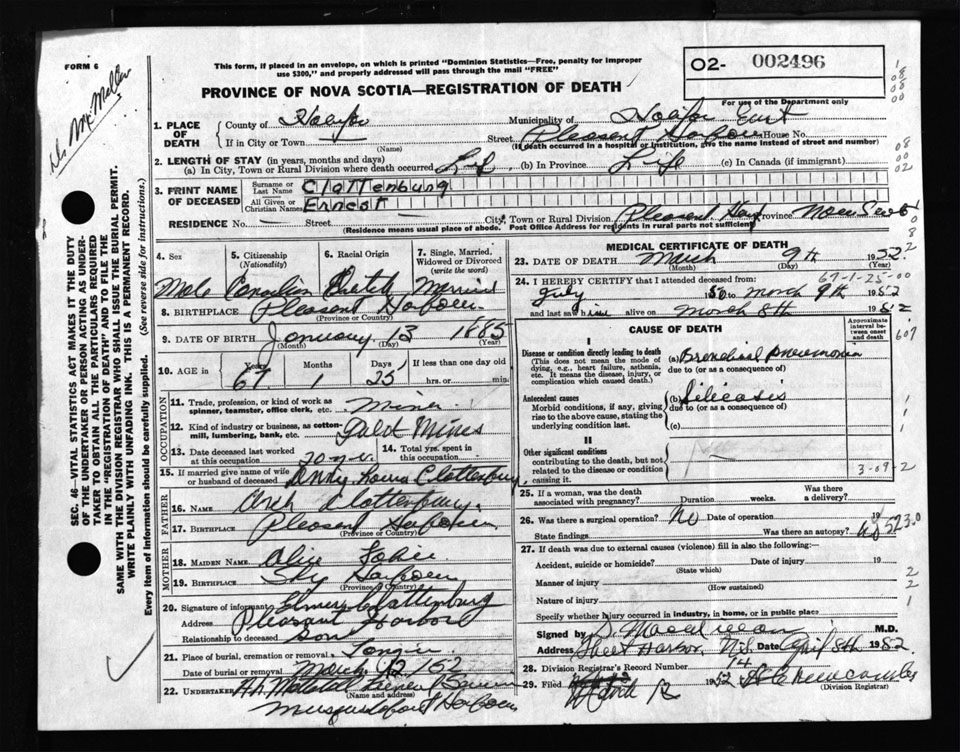 FORM 6
This form, if placed in an envelope, on which is printed "Dominion Statistics—Free, penalty for improper
use $300," and properly addressed will pass through the mail "FREE"
PROVINCE OF NOVA SCOTIA—REGISTRATION OF DEATH
O2- 002496
For use of the Department only
Dr McMillan
SEC. 46—VITAL STATISTICS ACT MAKES IT THE DUTY
OF THE UNDERTAKER OR PERSON ACTING AS UNDER-
TAKER TO OBTAIN ALL THE PARTICULARS REQUIRED
IN THE "REGISTRATION OF DEATH" AND TO FILE THE
SAME WITH THE DIVISION REGISTRAR WHO SHALL ISSUE THE BURIAL PERMIT.
WRITE PLAINLY WITH UNFADING INK. THIS IS A PERMANENT RECORD.
Every item of information should be carefully supplied. (See reverse side for instructions.)
1. PLACE OF DEATH
County of Halifax Municipality of Halifax East
If in City or Town (Name) Street Pleasent Harbour House No.
(If death occurred in a hospital or institution, give the name instead of street and number)
2. LENGTH OF STAY (in years, months and days)
(a) In City, Town or Rural Division where death occurred Life (b) In Province Life (c) In Canada (if immigrant)
3. PRINT NAME OF DECEASED
Surname or Last Name Clattenburg
All Given or Christian Names Ernest
RESIDENCE No. Street City, Town or Rural Division Pleasent Har Province Nova Scotia
(Residence means usual place of abode. Post Office Address for residents in rural parts not sufficient)
4. Sex Male
5. Citizenship (Nationality) Canadian
6. Racial Origin Dutch
7. Single, Married, Widowed or Divorced (write the word) Married
8. BIRTHPLACE Pleasent Harbour
(Province or Country)
9. DATE OF BIRTH January 13 1885
(Month) (Day) (Year)
10. AGE in Years 67 Months 1 Days 25 If less than one day old
hrs. or min.
OCCUPATION
11. Trade, profession, or kind of work as
spinner, teamster, office clerk, etc. miner
12. Kind of industry or business, as cotton-
mill, lumbering, bank, etc. Gold Mines
13. Date deceased last worked
at this occupation
14. Total yrs. spent in
this occupation
15. If married give name of wife
or husband of deceased Louisa Clattenburg
FATHER
16. NAME Clattenburg
17. BIRTHPLACE Pleasent Harbour
(Province or Country)
MOTHER
18. MAIDEN NAME Alice
19. BIRTHPLACE Harbour
(Province or Country)
20. Signature of informant Elmer Clattenburg
Address Pleasant Harbour
Relationship to deceased Son
21. Place of burial, cremation or removal Tangier
Date of burial or removal March 12 /52
22. UNDERTAKER
(Name and address)
Musquodoboit Harbour
MEDICAL CERTIFICATE OF DEATH
23. DATE OF DEATH March 9th 1952
(Month) (Day) (Year)
67-1-25-00
24. I HEREBY CERTIFY that I attended deceased from:
July 50 to March 9th 1952
and last saw him alive on March 8th 1952
CAUSE OF DEATH
Approximate interval between onset and death
I
Disease or condition directly leading to death
(This does not mean the mode of
dying, e.g., heart failure, asthenia,
etc. It means the disease, injury, or
complication which caused death.)
(a) Bronchial Pneumonia
due to (or as a consequence of)
Antecedent causes
Morbid conditions, if any, giving
rise to the above cause, stating the
underlying condition last.
(b) Silicosis
due to (or as a consequence of)
(c)
II
Other significant conditions
contributing to the death, but not
related to the disease or condition
causing it.
3-09-2
25. If a woman, was the death
associated with pregnancy? Duration weeks. Was there a delivery?
26. Was there surgical operation? No Date of operation 19
State findings Was there an autopsy? no
523.0
27. If death was due to external causes (violence) fill in also the following:—
Accident, suicide or homicide? Date of injury 19
(State which)
Manner of injury
(How sustained)
Nature of injury
Specify whether injury occurred in industry, in home, or in public place
Signed by M.D.
Address Sheet Harbor, N.S. Date April 8th 1952
28. Division Registrar's Record Number 14
29. Filed March 12 1952
(Division Registrar)